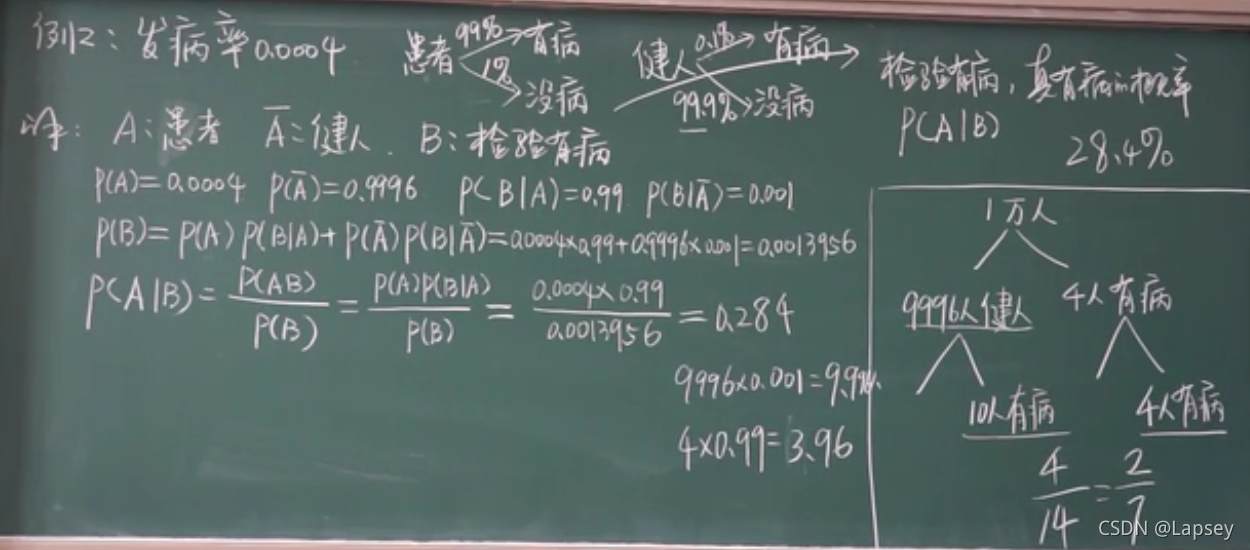 例2：发病率0.0004 患者 99% 有病 1% 没病 健人 0.1% 有病 99.9% 没病
检验有病，真有病的概率
P(A|B) 28.4%
解：A：患者 Ā：健人. B：检验有病
P(A)=0.0004 P(Ā)=0.9996 P(B|A)=0.99 P(B|Ā)=0.001
P(B)=P(A)P(B|A)+P(Ā)P(B|Ā)=0.0004×0.99+0.9996×0.001=0.0013956
P(A|B)=P(AB)/P(B)=P(A)P(B|A)/P(B)=0.0004×0.99/0.0013956=0.284
9996×0.001=9.996
4×0.99=3.96
1万人
9996人健人 4人有病
10人有病 4人有病
4/14=2/7
CSDN @Lapsey